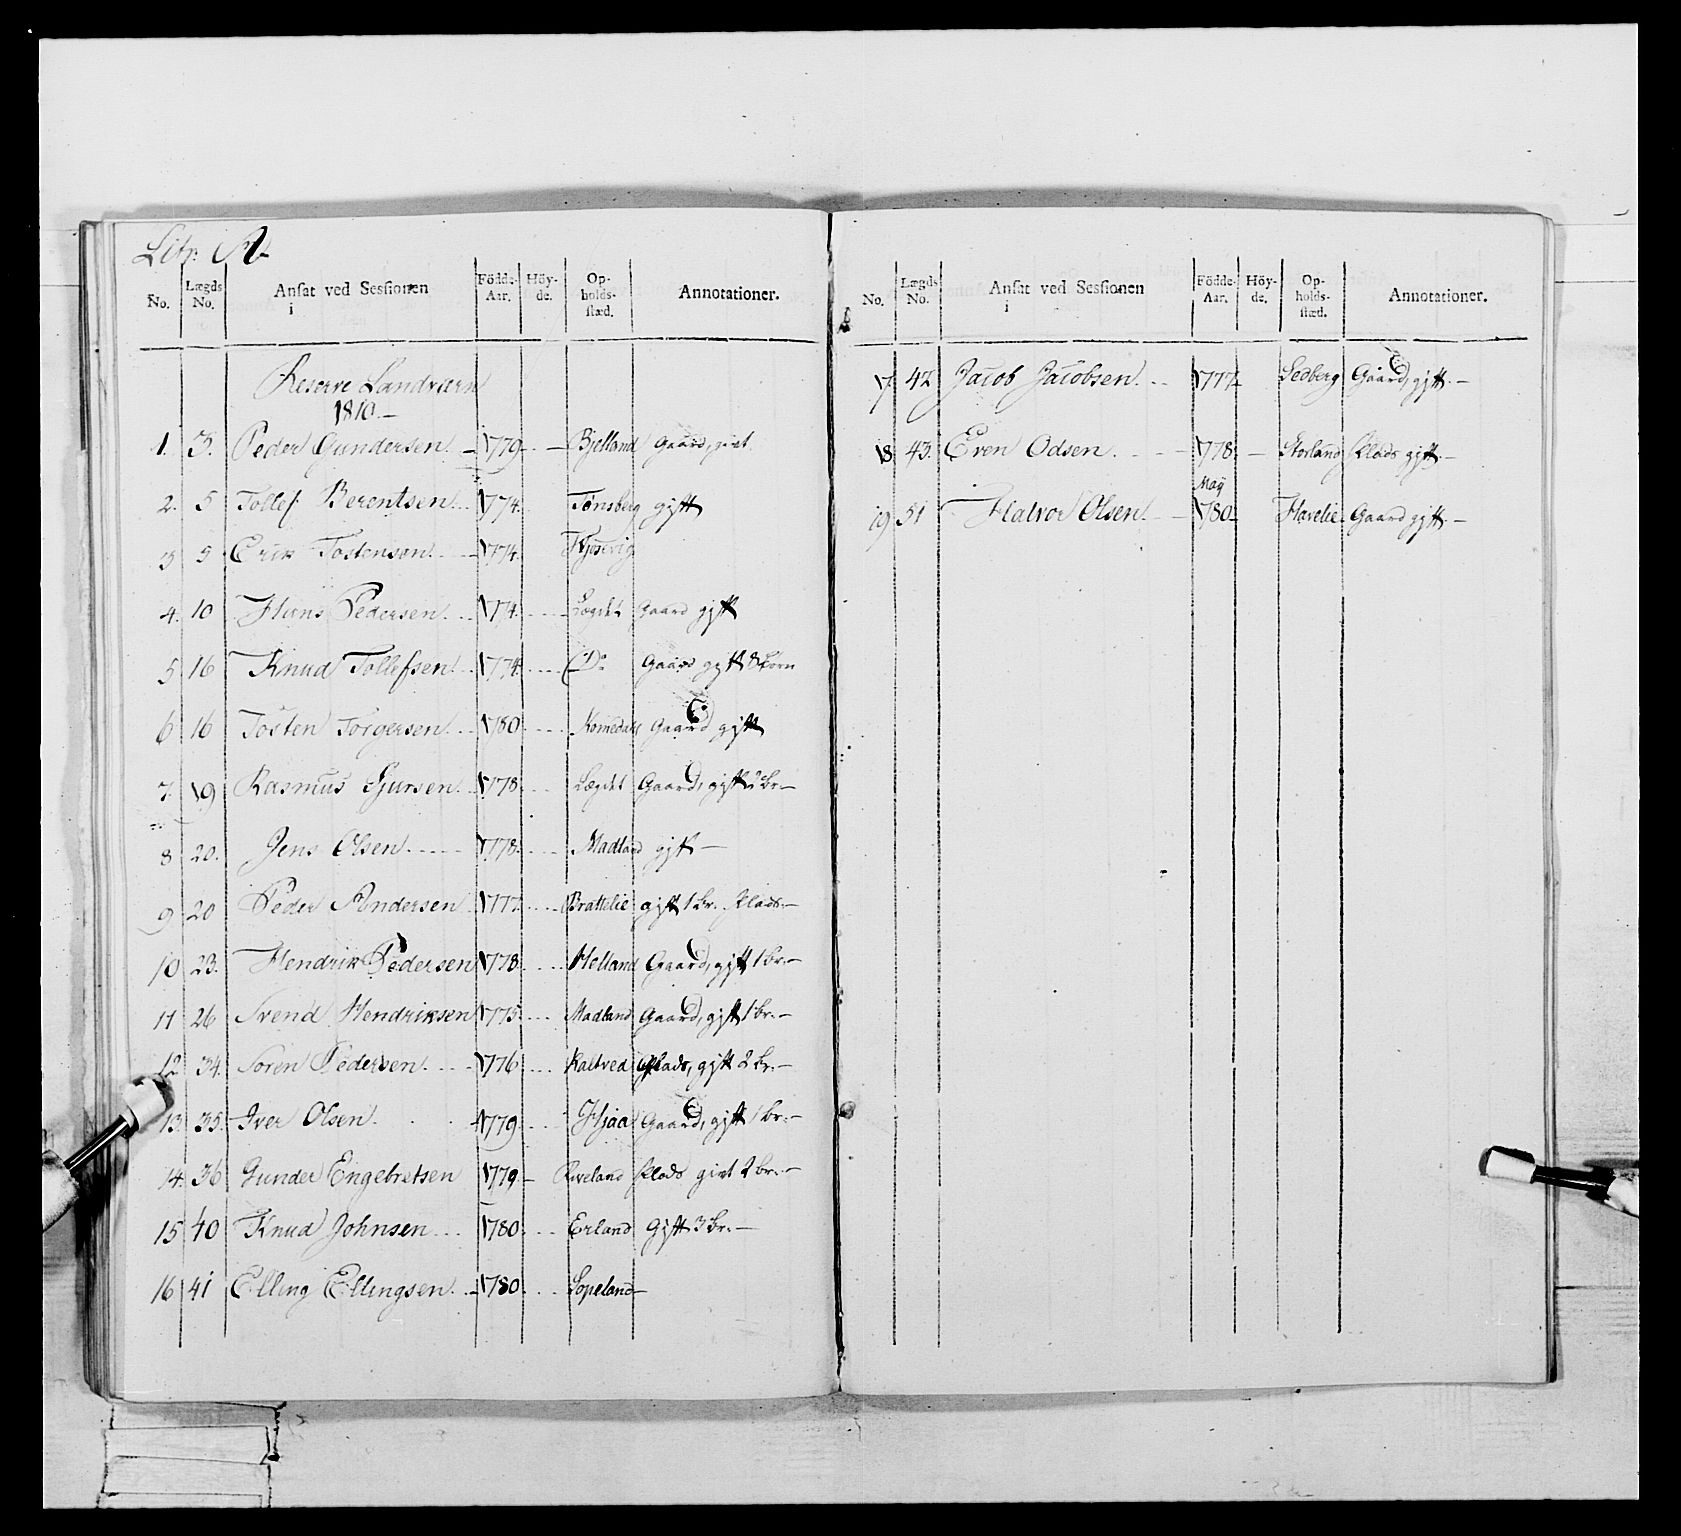 Litr: A
No. Lægds No. Ansat ved Sessionen i Födde-Aar. Höy-de. Op-holds-stæd. Annotationer.
Reserve Landværn
1810.-
1. 3. Peder Gundersen 1779 Bjelland Gaard, givt
2. 5 Tollef Berentsen 1774. Tonsberg gift
3 5 Erik Tostensen 1774. Kjosevig
4. 10 Hans Pedersen 1774. Lægdet Gaard gift
5 16 Knud Tollefsen 1774 Do Gaard gift 8 börn
6 16 Tosten Torgersen 1780 Gaard gift
7. 19 Rasmus Sjursen 1778. Lægdet Gaard, gift 2 br.-
8 20. Jens Olsen 1778. Madland gift -
9 20 Peder Andersen 1777. Brattelie gift 1 br. Plads.-
10 23. Hendrik Pedersen 1778. Helland Gaard, gift 1 br.-
11 26 Svend Hendriksen 1775. Madland Gaard, gift 1 br.-
12 34. Soren Pedersen 1776 Kaltved Plads, gift 2 br.-
13. 35. Iver Olsen 1779 Hjaa Gaard, gift 1 br.-
14. 36 Gunder Engebretsen 1779 - Riveland Plads givt 2 br.-
15 40 Knud Johnsen 1780. Erland Gift 3 br.-
16 41 Elling Ellingsen 1780. Sopeland-
No. Lægds No. Ansat ved Sessionen i Födde-Aar. Höy-de. Op-holds-stæd. Annotationer.
17. 42 Jacob Jacobsen 1777. Sedberg Gaard, gift.-
18 43. Even Odsen 1778. - Storland Plads gift.-
19 51 Halvor Olsen May 1780. Havelie Gaard gift.-